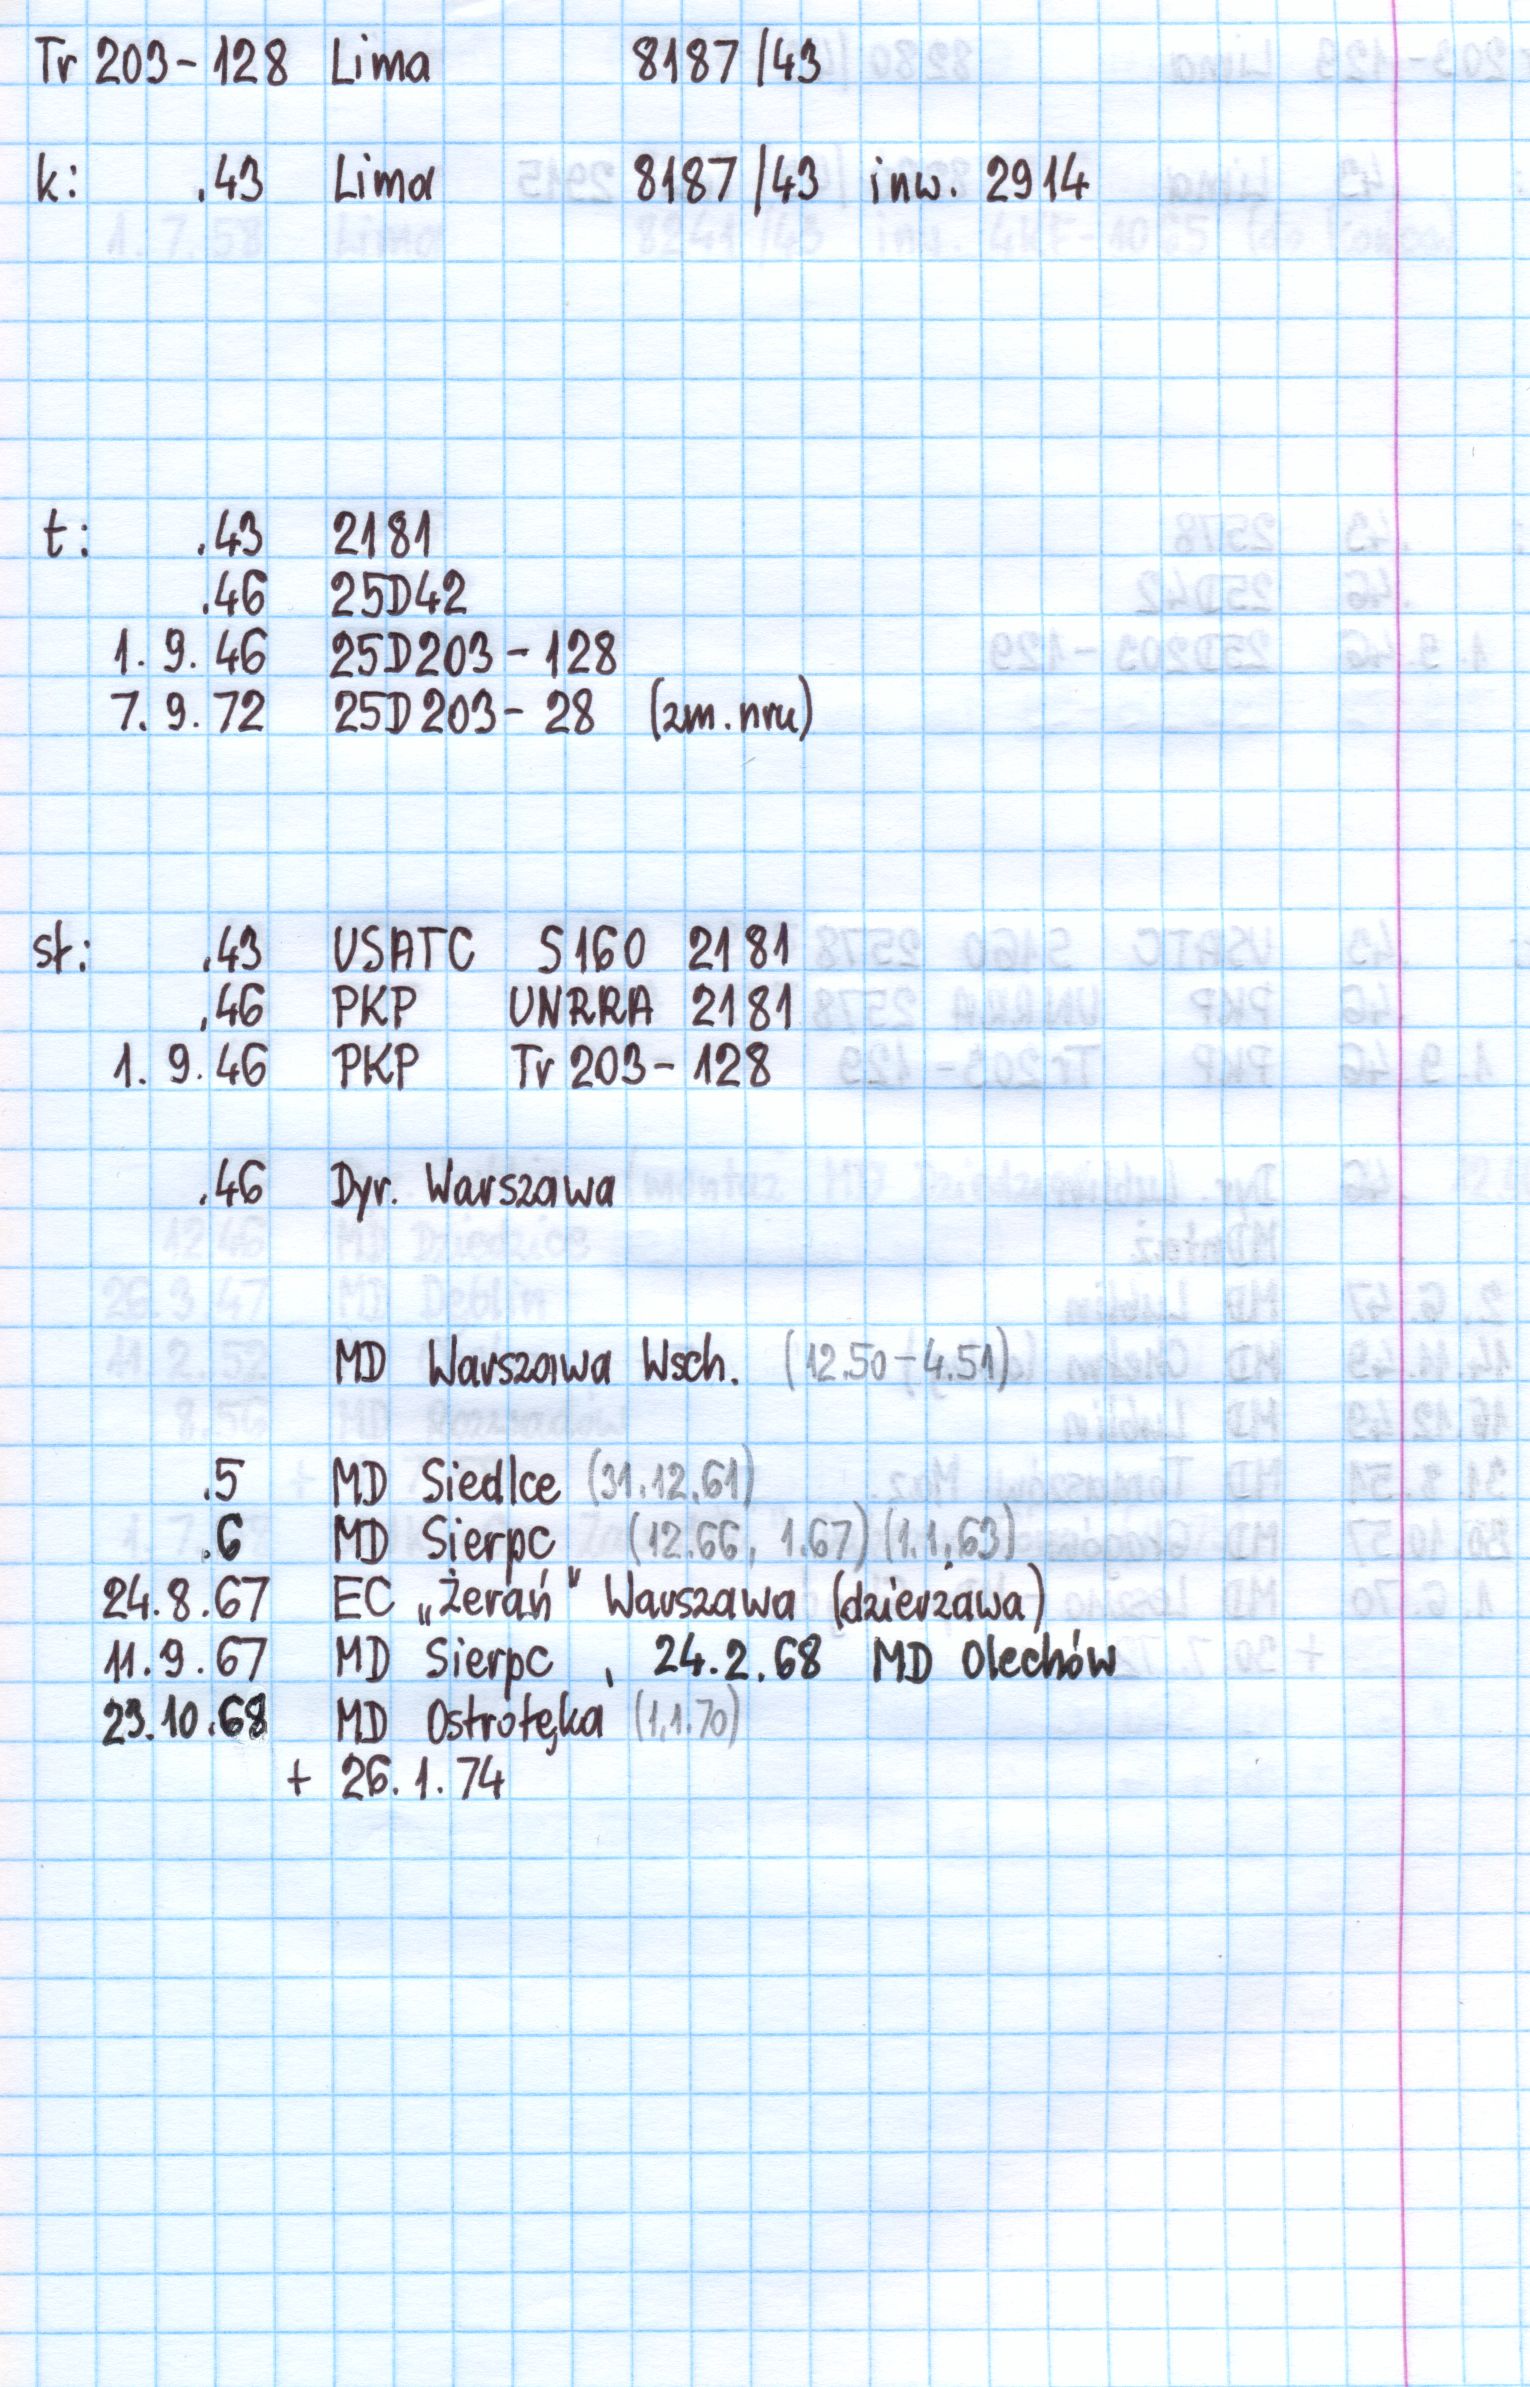 Tr 203-128 Lima 8187/43
k: .43 Lima 8187/43 inw. 2914
t: .43 2181
.46 25D42
1.9.46 25D203-128
7.9.72 25D203-28 (zm. nru)
st: .43 USATC S160 2181
.46 PKP UNRRA 2181
1.9.46 PKP Tr 203-128
.46 Dyr. Warszawa
MD Warszawa Wsch. (12.50-4.51)
.5 MD Siedlce (31.12.61)
.6 MD Sierpc (12.66, 1.67) (1.1.63)
24.8.67 EC „Żerań" Warszawa (dzierżawa)
11.9.67 MD Sierpc, 24.2.68 MD Olechów
23.10.68 MD Ostrołęka (1.1.70)
+ 26.1.74